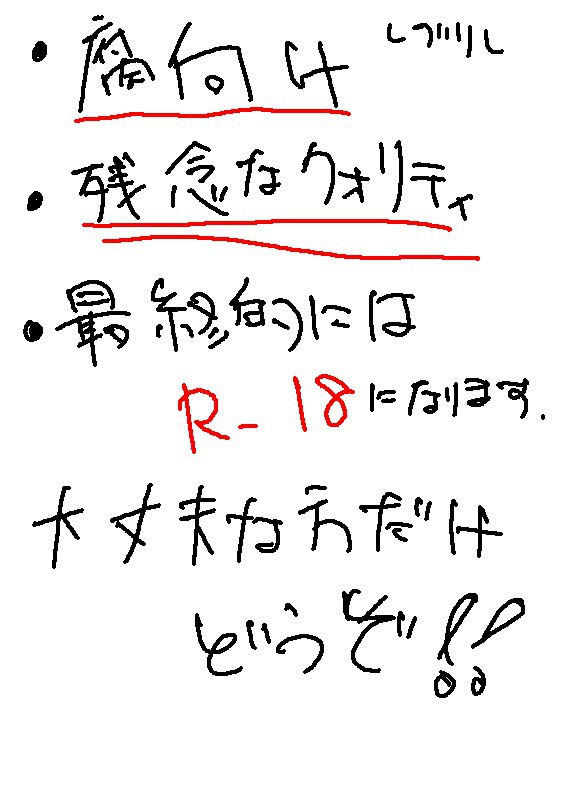 ・腐向け
・残念なクォリティ
・最終的には
R-18になります.
大丈夫な方だけ
どうぞ!!